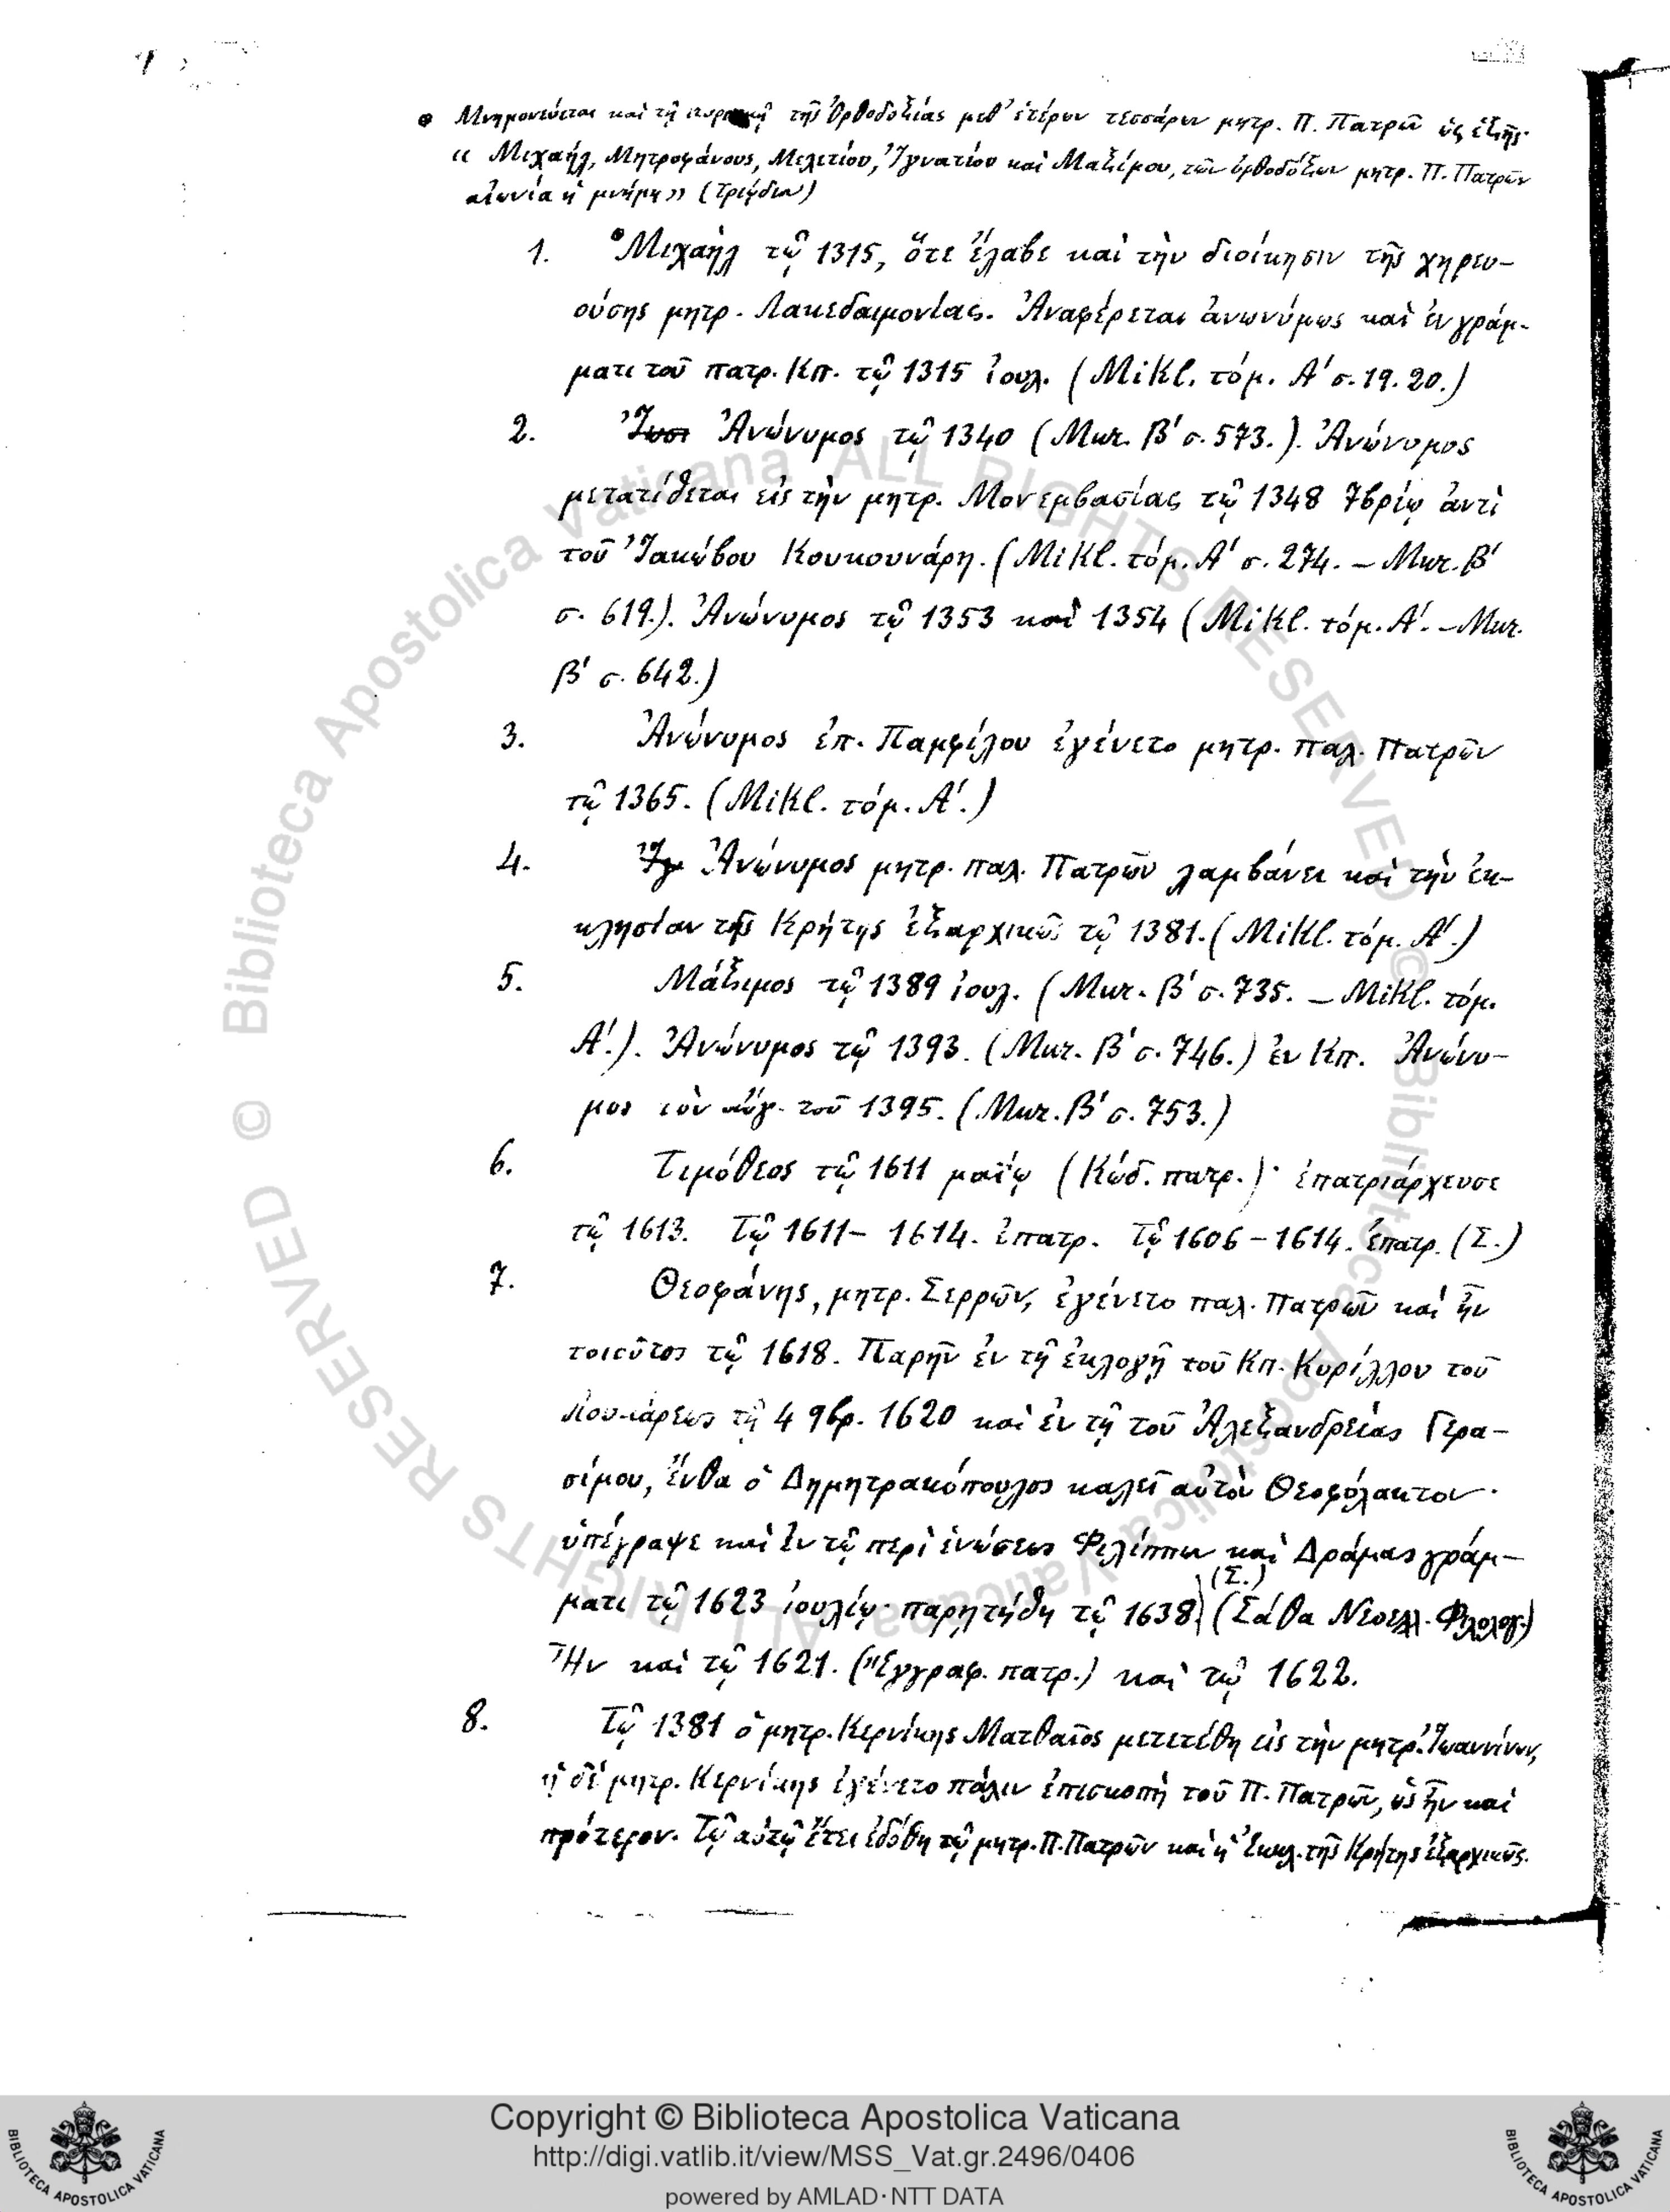 • Μνημονεύεται καὶ τῇ κυριακῇ τῆς Ὀρθοδοξίας μεθ' ἑτέρων τεσσάρων μητρ. Π. Πατρῶν ὡς ἑξῆς·
« Μιχαήλ, Μητροφάνους, Μελετίου, Ἰγνατίου καὶ Μαξίμου, τῶν ὀρθοδόξων μητρ. Π. Πατρῶν
αἰωνία ἡ μνήμη» (Τριῴδιον)
1. •Μιχαὴλ τῷ 1315, ὅτε ἔλαβε καὶ τὴν διοίκησιν τῆς χηρευ-
ούσης μητρ. Λακεδαιμονίας. Ἀναφέρεται ἀνωνύμως καὶ ἐν γράμ-
ματι τοῦ πατρ. Κπ. τῷ 1315 ἰουλ. (Mikl. τόμ. Α' σ. 19. 20.)
2. Ἀνώνυμος τῷ 1340 (Μυζ. β' σ. 573.). Ἀνώνυμος
μετατίθεται εἰς τὴν μητρ. Μονεμβασίας τῷ 1348 7βρίῳ ἀντὶ
τοῦ Ἰακώβου Κουκουνάρη. (Mikl. τόμ. Α' σ. 274. – Μυζ. β'
σ. 619.). Ἀνώνυμος τῷ 1353 καὶ 1354 (Mikl. τόμ. Α'. – Μυζ.
β' σ. 642.)
3. Ἀνώνυμος ἐπ. Παμφίλου ἐγένετο μητρ. παλ. Πατρῶν
τῷ 1365. (Mikl. τόμ. Α'.)
4. Ἀνώνυμος μητρ. παλ. Πατρῶν λαμβάνει καὶ τὴν ἐκ-
κλησίαν τῆς Κρήτης ἐξαρχικῶς τῷ 1381. (Mikl. τόμ. Α'.)
5. Μάξιμος τῷ 1389 ἰουλ. (Μυζ. β' σ. 735. – Mikl. τόμ.
Α'.). Ἀνώνυμος τῷ 1393. (Μυζ. β' σ. 746.) ἐν Κπ. Ἀνώνυ-
μος τὸν αὔγ. τοῦ 1395. (Μυζ. β' σ. 753.)
6. Τιμόθεος τῷ 1611 μαΐῳ (Κώδ. πατρ.)· ἐπατριάρχευσε
τῷ 1613. Τῷ 1611– 1614. ἐπατρ. Τῷ 1606 – 1614. ἐπατρ. (Σ.)
7. Θεοφάνης, μητρ. Σερρῶν, ἐγένετο παλ. Πατρῶν καὶ ἦν
τοιοῦτος τῷ 1618. Παρῆν ἐν τῇ ἐκλογῇ τοῦ Κπ. Κυρίλλου τοῦ
Λουκάρεως τῇ 4 9βρ. 1620 καὶ ἐν τῇ τοῦ Ἀλεξανδρείας Γερα-
σίμου, ἔνθα ὁ Δημητρακόπουλος καλεῖ αὐτὸν Θεοφύλακτον·
ὑπέγραψε καὶ ἐν τῷ περὶ ἑνώσεως Φιλίππων καὶ Δράμας γράμ-
ματι τῷ 1623 ἰουλίῳ· παρῃτήθη τῷ 1638 (Σ.) (Σάθα Νεοελλ. Φιλολογ.)
Ἦν καὶ τῷ 1621. (Ἔγγραφ. πατρ.) καὶ τῷ 1622.
8. Τῷ 1381 ὁ μητρ. Κερνίκης Ματθαῖος μετετέθη εἰς τὴν μητρ. Ἰωαννίνων,
ἡ δὲ μητρ. Κερνίκης ἐγένετο πάλιν ἐπισκοπὴ τοῦ Π. Πατρῶν, ὡς ἦν καὶ
πρότερον. Τῷ αὐτῷ ἔτει ἐδόθη τῷ μητρ. Π. Πατρῶν καὶ ἡ Ἐκκλ. τῆς Κρήτης ἐξαρχικῶς.
© Biblioteca Apostolica Vaticana ALL RIGHTS RESERVED © Biblioteca Apostolica Vaticana ALL RIGHTS RESERVED
Copyright © Biblioteca Apostolica Vaticana
http://digi.vatlib.it/view/MSS_Vat.gr.2496/0406
powered by AMLAD·NTT DATA
BIBLIOTECA APOSTOLICA VATICANA
BIBLIOTECA APOSTOLICA VATICANA